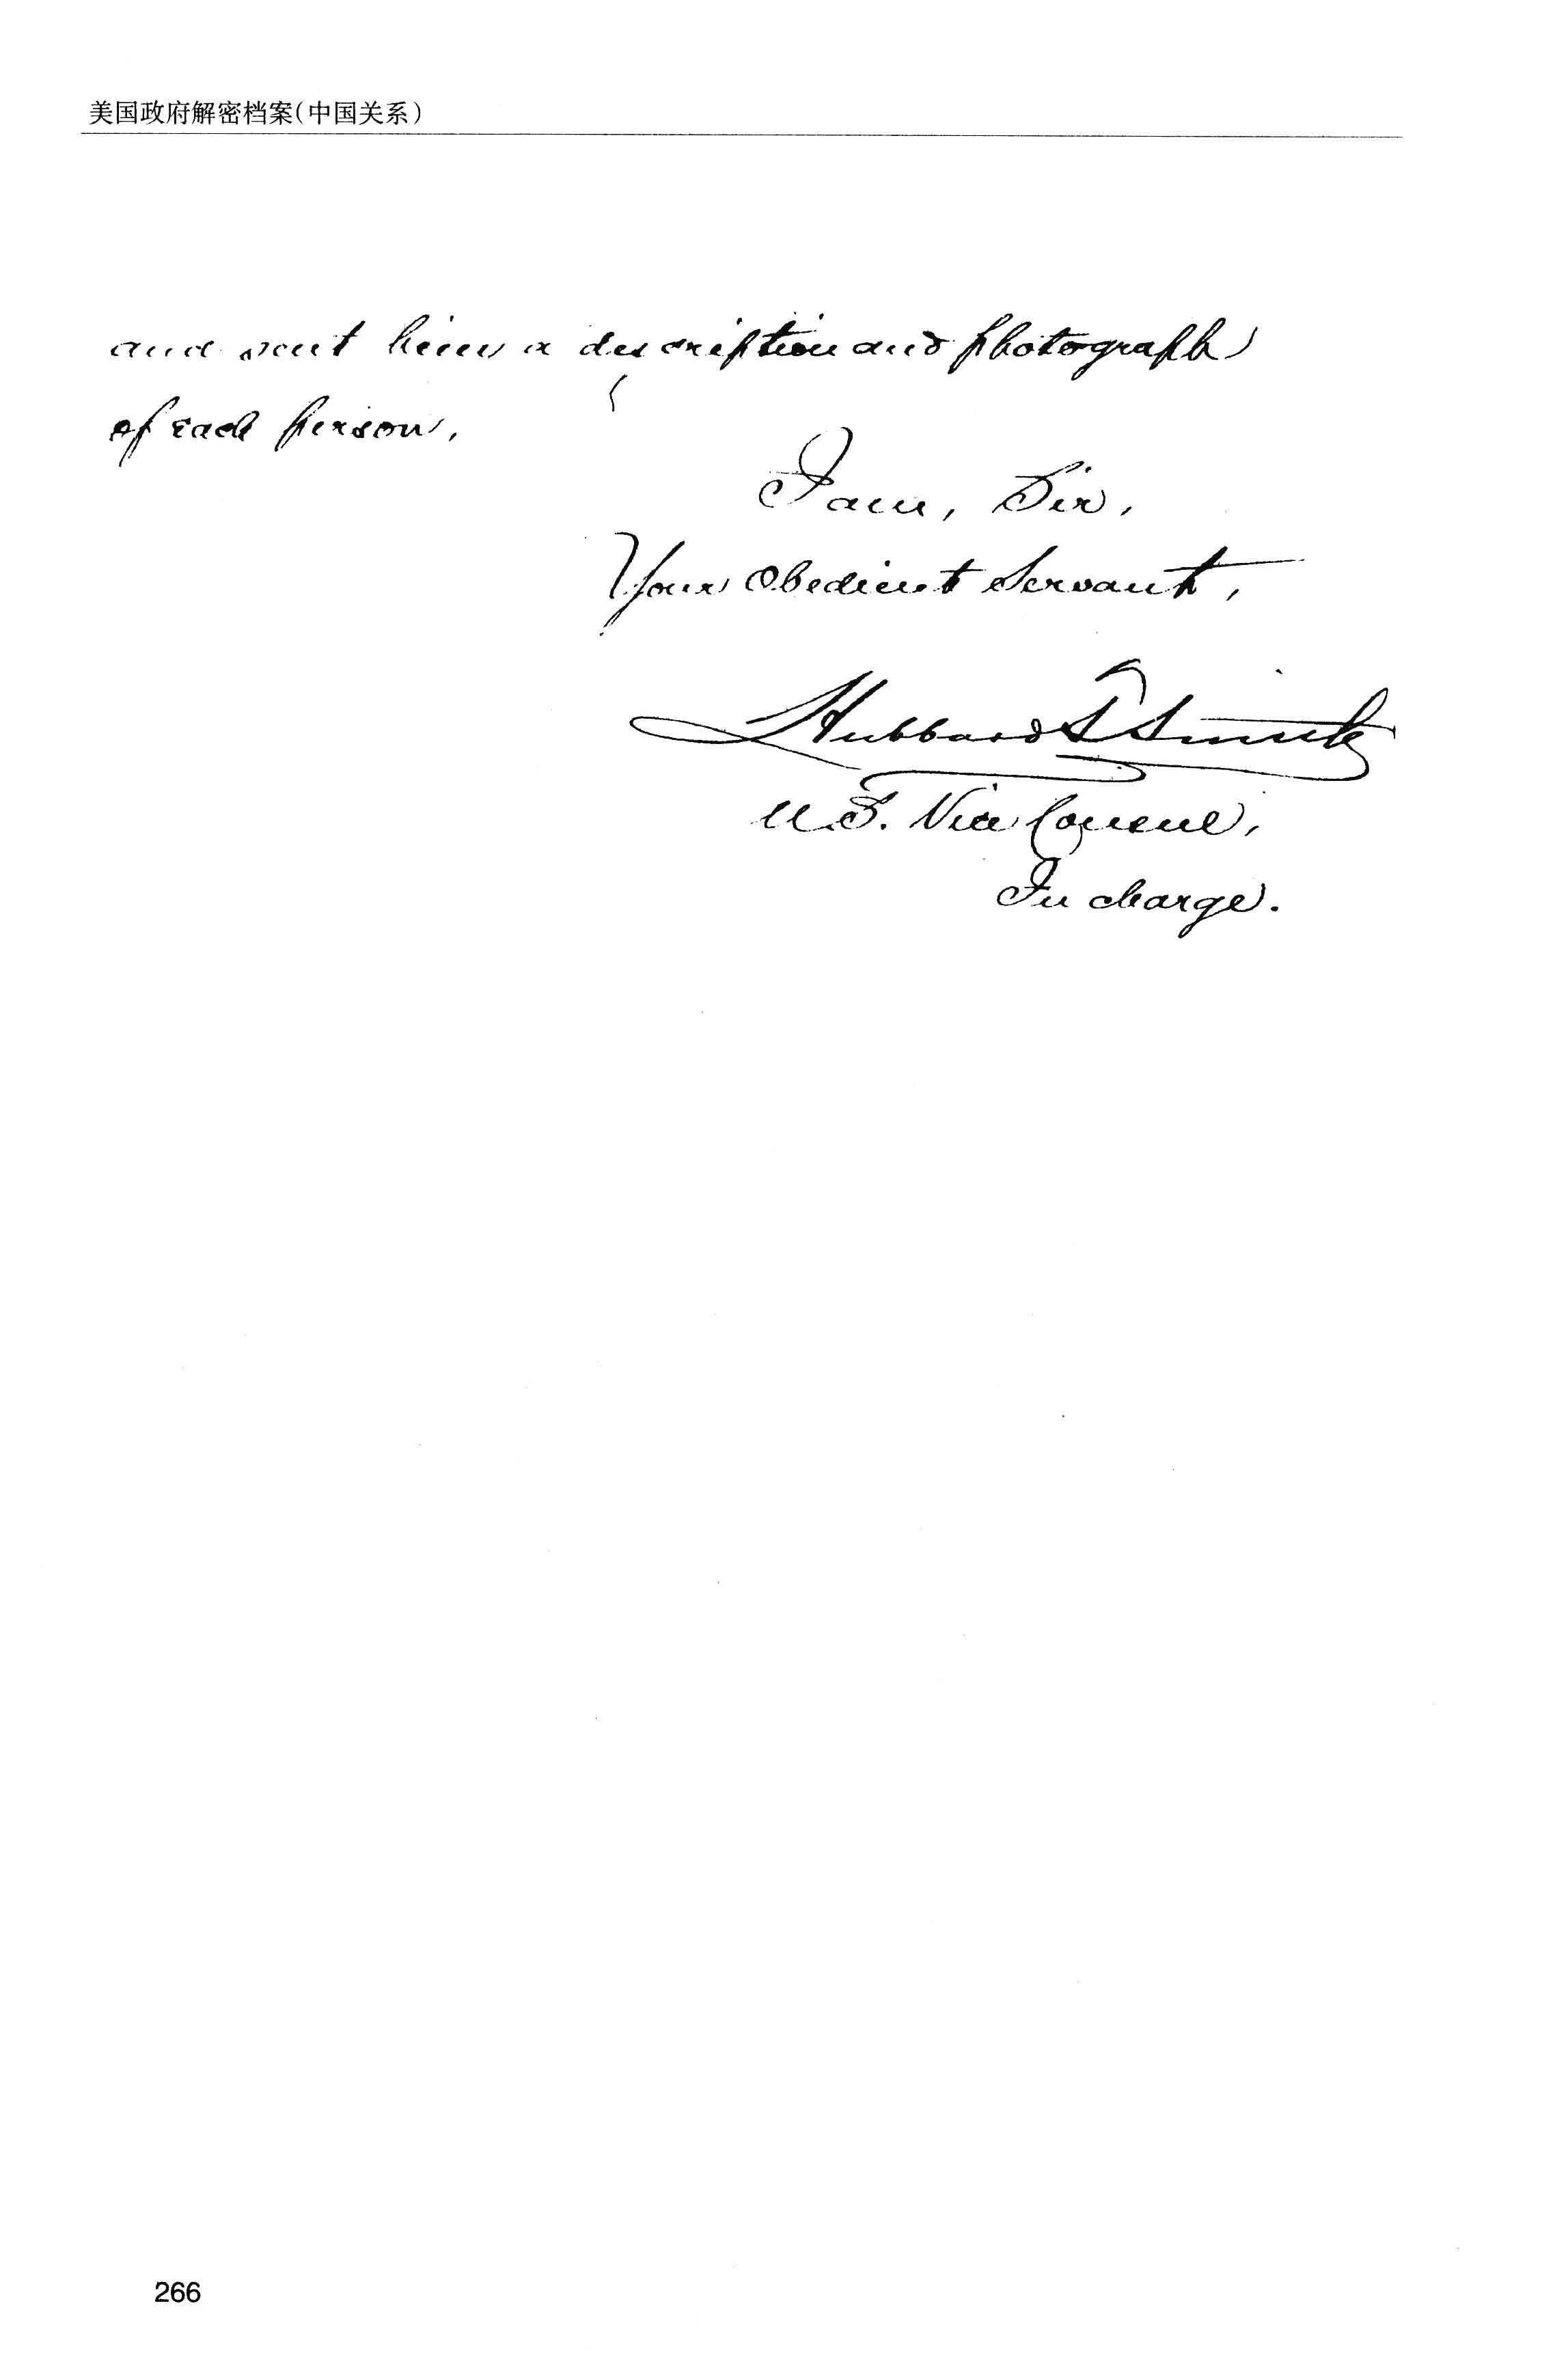 美国政府解密档案(中国关系)
and sent him a description and photograph
of each person.
I am, Sir,
Your Obedient Servant,
Hubbard T. Smith
U.S. Vice Consul,
In charge.
266